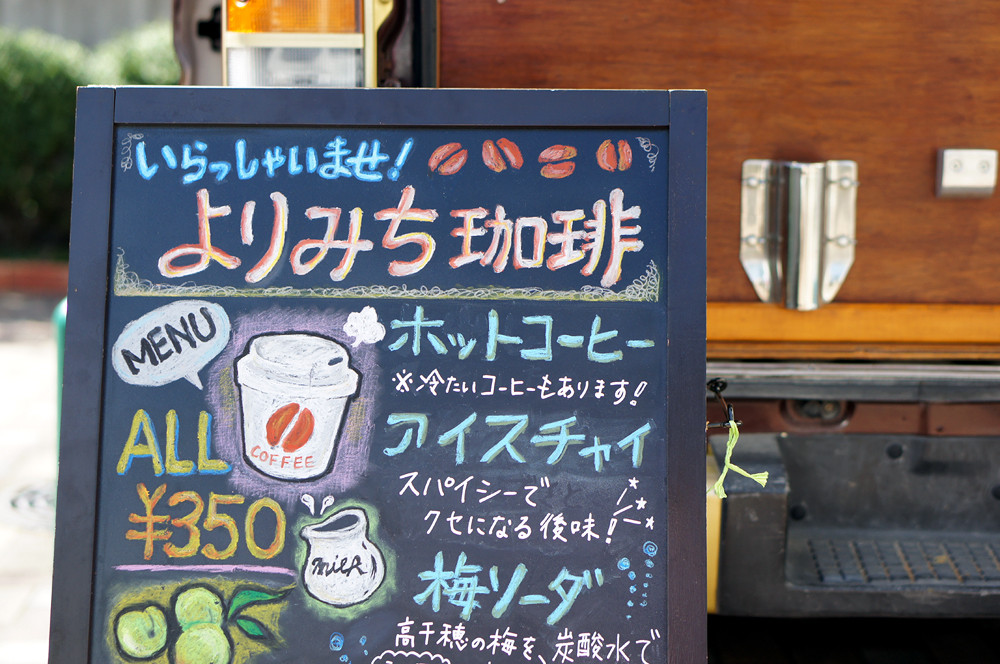 いらっしゃいませ!
よりみち珈琲
MENU
ホットコーヒー
※冷たいコーヒーもあります!
COFFEE
ALL
¥350
アイスチャイ
スパイシーで
クセになる後味!
milk
梅ソーダ
高千穂の梅を、炭酸水で